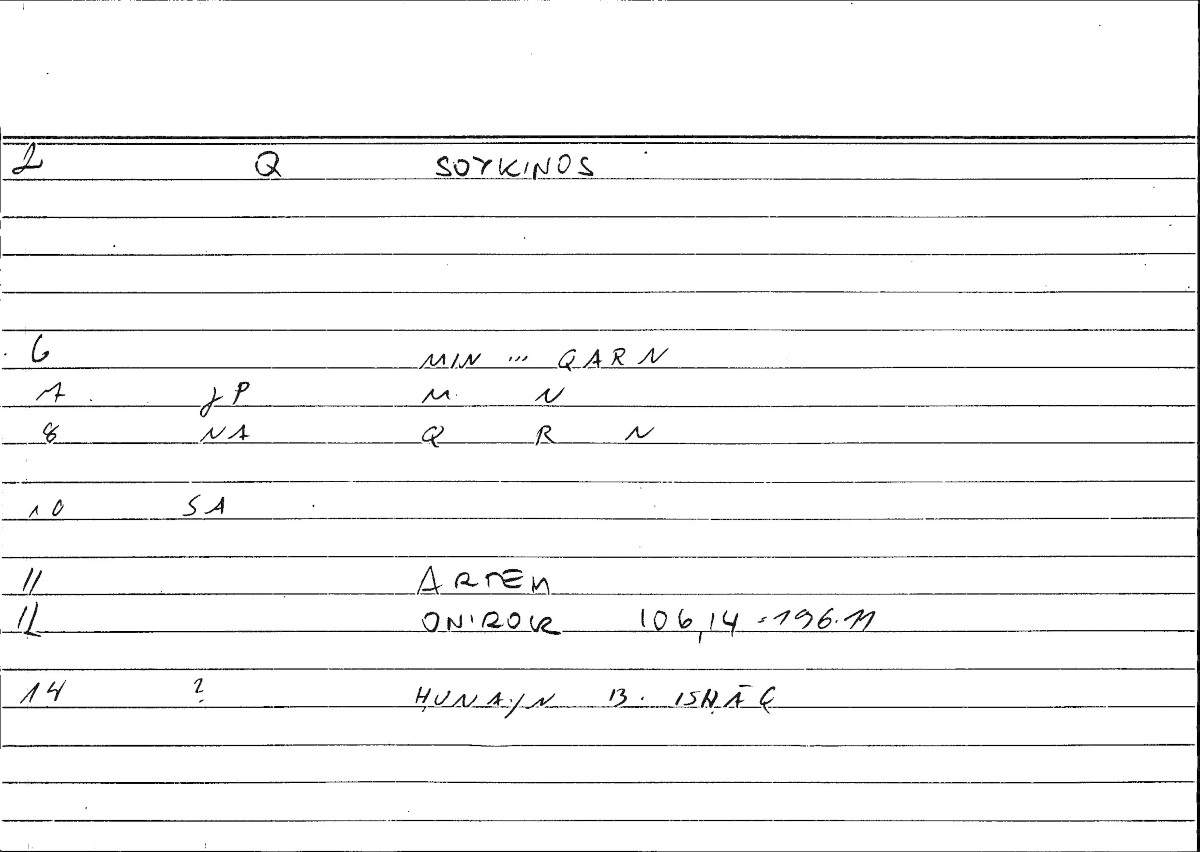 2 Q SOYKINOS
6 MIN ... QARN
7 JP M N
8 NA Q R N
10 SA
11 ARTEM
12 ONIROK 106,14 = 196.11
14 ? ḤUNAJN B. ISḤĀQ